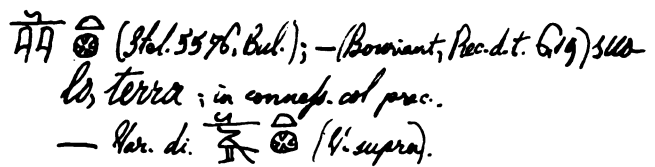 (Stel. 5576, Bul.); — (Bouriant, Rec. d. t. 6, 19) suo-
lo, terra; in conness. col prec..
— Var. di. (V. supra).